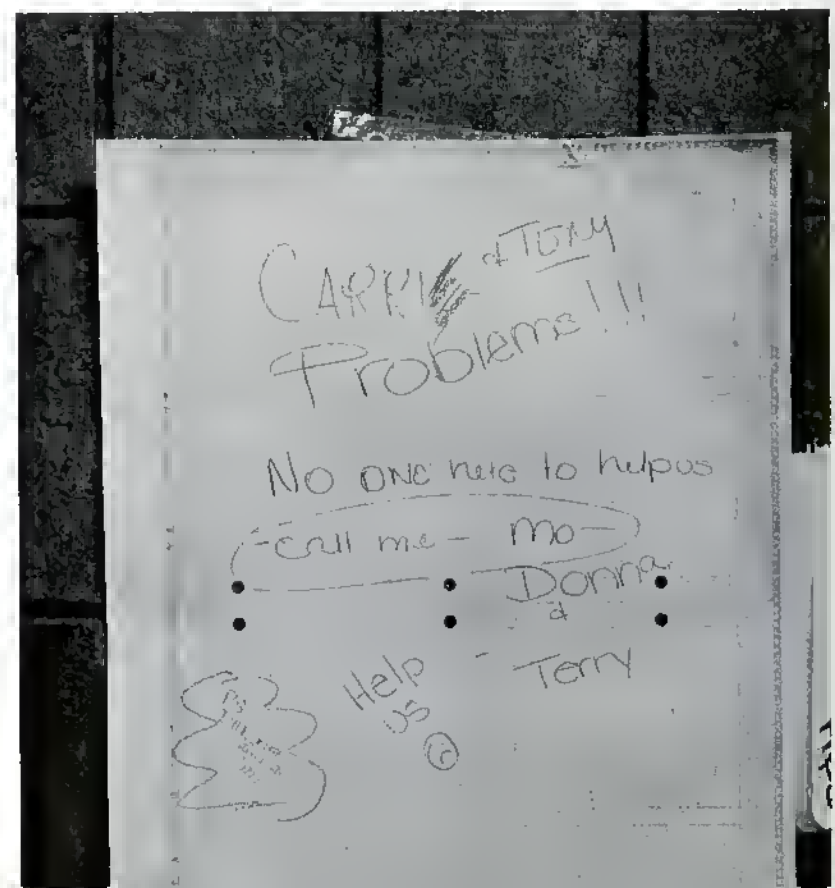 CARRIE & TERRY
Problems!!!
No ONE here to help us
-call me- Mo-
Donna
&
Terry
Help
us
PS